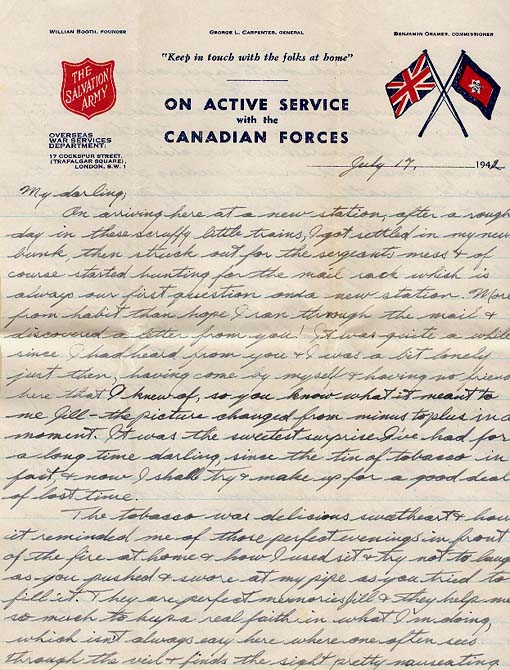 William Booth, Founder
George L. Carpenter, General
Benjamin Orames, Commissioner
"Keep in touch with the folks at home"
THE
SALVATION
ARMY
ON ACTIVE SERVICE
with the
CANADIAN FORCES
OVERSEAS
WAR SERVICES
DEPARTMENT:
17 COCKSPUR STREET,
(TRAFALGAR SQUARE),
LONDON, S.W. 1
July 17, 1942
My darling;
On arriving here at a new station, after a rough
day in these scruffy little trains, I got settled in my new
bunk, then struck out for the sergeants mess & of
course started hunting for the mail rack which is
always our first question on a new station. More
from habit than hope I ran through the mail &
discovered a letter from you! It was quite a while
since I had heard from you & I was a bit lonely
just then, having come by myself & having no friend
here that I knew of, so you know what it meant to
me Jill – the picture changed from minus to plus in a
moment. It was the sweetest surprise I've had for
a long time darling, since the tin of tobacco in
fact, & now I shall try & make up for a good deal
of lost time.
The tobacco was delicious sweatheart & how
it reminded me of those perfect evenings in front
of the fire at home & how I used sit & try not to laug
as you pushed & swore at my pipe as you tried to
fill it. They are perfect memories Jill & they help me
so much to keep a real faith in what I'm doing,
which isn't always easy here where one often sees
through the veil & finds the sight pretty nauseating.